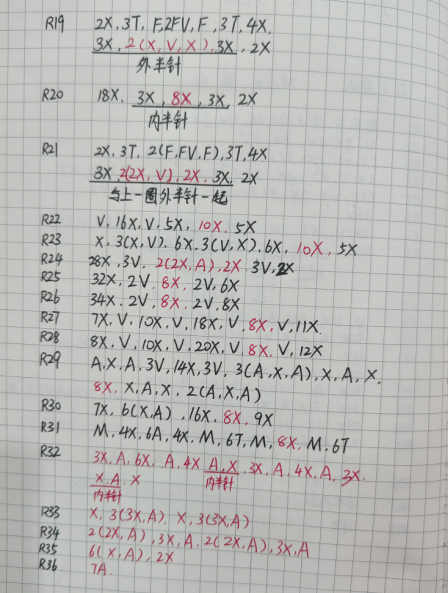 R19 2X,3T,F,2FV,F,3T,4X,
3X,2(X,V,X),3X,2X
外半针
R20 18X,3X,8X,3X,2X
内半针
R21 2X,3T,2(F,FV,F),3T,4X
3X,2(2X,V),2X,3X,2X
与上一圈外半针一起
R22 V,16X,V,5X,10X,5X
R23 X,3(X,V),6X,3(V,X),6X,10X,5X
R24 28X,3V,2(2X,A),2X,3V,2X
R25 32X,2V,8X,2V,6X
R26 34X,2V,8X,2V,8X
R27 7X,V,10X,V,18X,V,8X,V,11X
R28 8X,V,10X,V,20X,V,8X,V,12X
R29 A,X,A,3V,14X,3V,3(A,X,A),X,A,X,
8X,X,A,X,2(A,X,A)
R30 7X,6(X,A),16X,8X,9X
R31 M,4X,6A,4X,M,6T,M,8X,M,6T
R32 3X,A,6X,A,4X A,X,3X,A,4X,A,3X,
内半针
X,A,X
内半针
R33 X,3(3X,A),X,3(3X,A)
R34 2(2X,A),3X,A,2(2X,A),3X,A
R35 6(X,A),2X
R36 7A